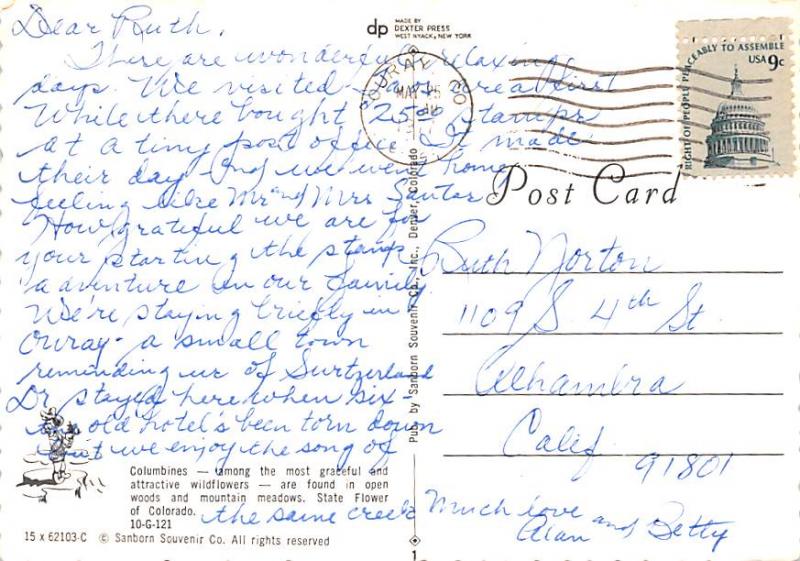 Dear Ruth,
There are wonderful relaxing
days. We visited area first
While there bought 2500 stamps
at a tiny post office. It made
their day and we went home
feeling like Mr and Mrs Santa
How grateful we are for
your starting the stamp
adventure in our family
We're staying briefly in
Ouray - a small town
reminding us of
stayed here when six -
the old hotel's been torn down
but we enjoy the song of
the same creek
Much love
Alan and Betty
dp MADE BY
DEXTER PRESS
WEST NYACK, NEW YORK
OURAY CO
MAY 15
RIGHT OF PEOPLE PEACEABLY TO ASSEMBLE
USA 9c
Post Card
Ruth Norton
1109 S 4th St
Alhambra
Calif
91801
Pub. by Sanborn Souvenir Co., Inc., Denver, Colorado
Columbines — (among the most graceful and
attractive wildflowers — are found in open
woods and mountain meadows. State Flower
of Colorado.
10-G-121
15 x 62103-C © Sanborn Souvenir Co. All rights reserved
1